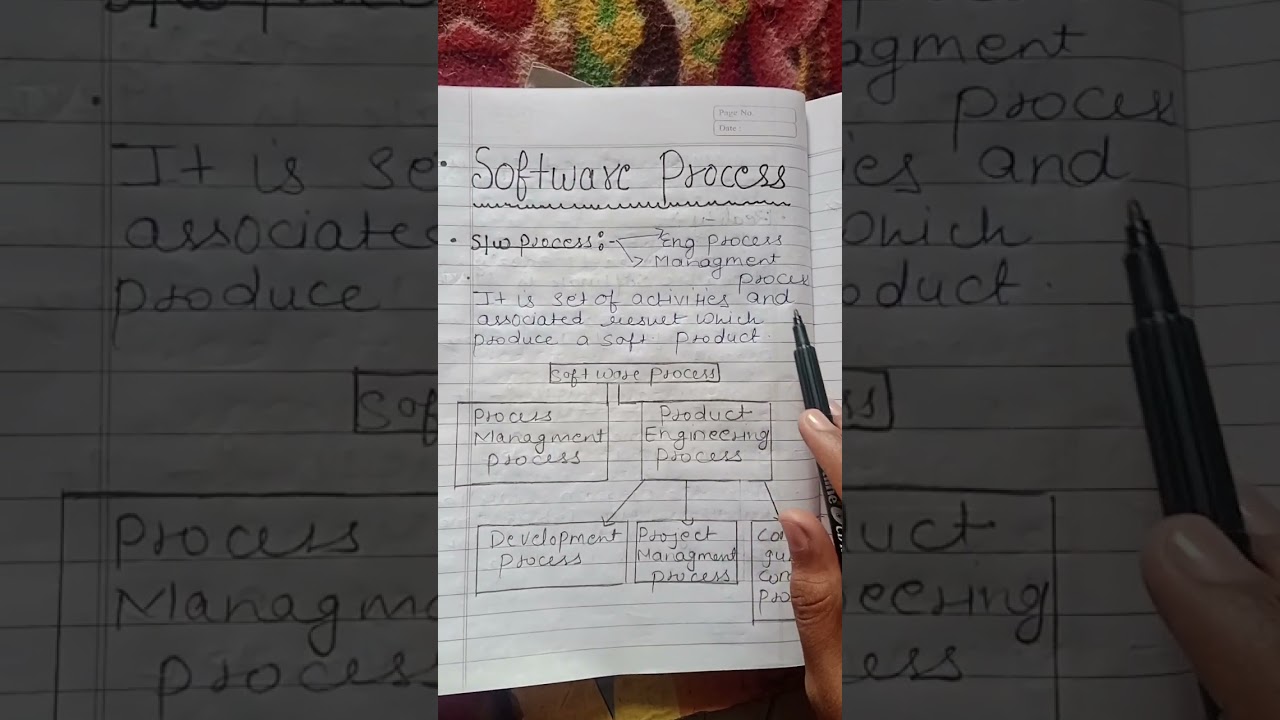 Page No.
Date :
Software Process
S/w process :- Eng process
Managment
process
It is set of activities and
associated result which
produce a soft. product.
Software process
Process
Managment
process
Product
Engineering
process
Development
process
Project
Managment
process